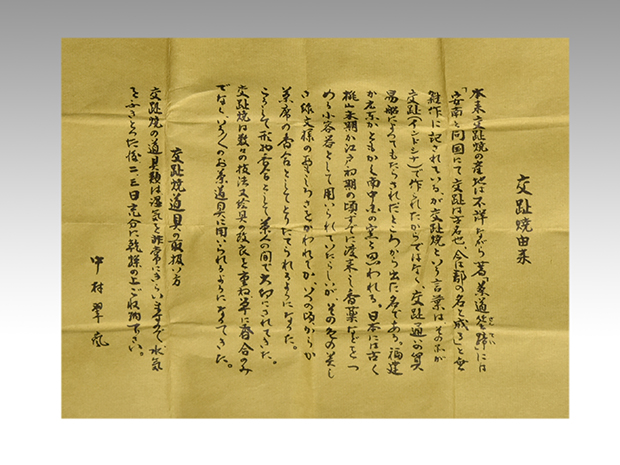 交趾焼由来
本来交趾焼の産地は不詳ながら著、茶道筌蹄には
「安南と同国にて交趾は字名也、今は郡の名と成る」と無
雑作に記されているが交趾焼という言葉はその品が
交趾(インドシナ)で作られたからではなく交趾通の貿
易船によってもたらされたところから出た名である。福建
か
ともかく南中支の窯と思われる。日本には古く
桃山末期か江戸初期の頃すでに渡来し香薬などをつ
める小容器として用いられていたらしいがその色の美し
さ
文様の
しさとがかわれてか いつの頃からか
茶席の香合としてとりたてられるようになった。
こうして形物香合として茶人の間で大切にされてきた。
交趾焼は数々の技法又絵具の改良を重ね単に香合のみ
でなく多くのお茶道具に用いられるようになってきた。
交趾焼道具の取扱い方
交趾焼の道具類は湿気を非常にきらいますので、水気
をふきとった後二三日充分に乾燥の上ご収納下さい。
中村翠嵐